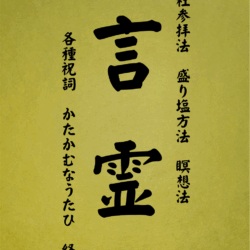 社参拝法　盛り塩方法　瞑想法
言霊
各種祝詞　かたかむなうたひ　経